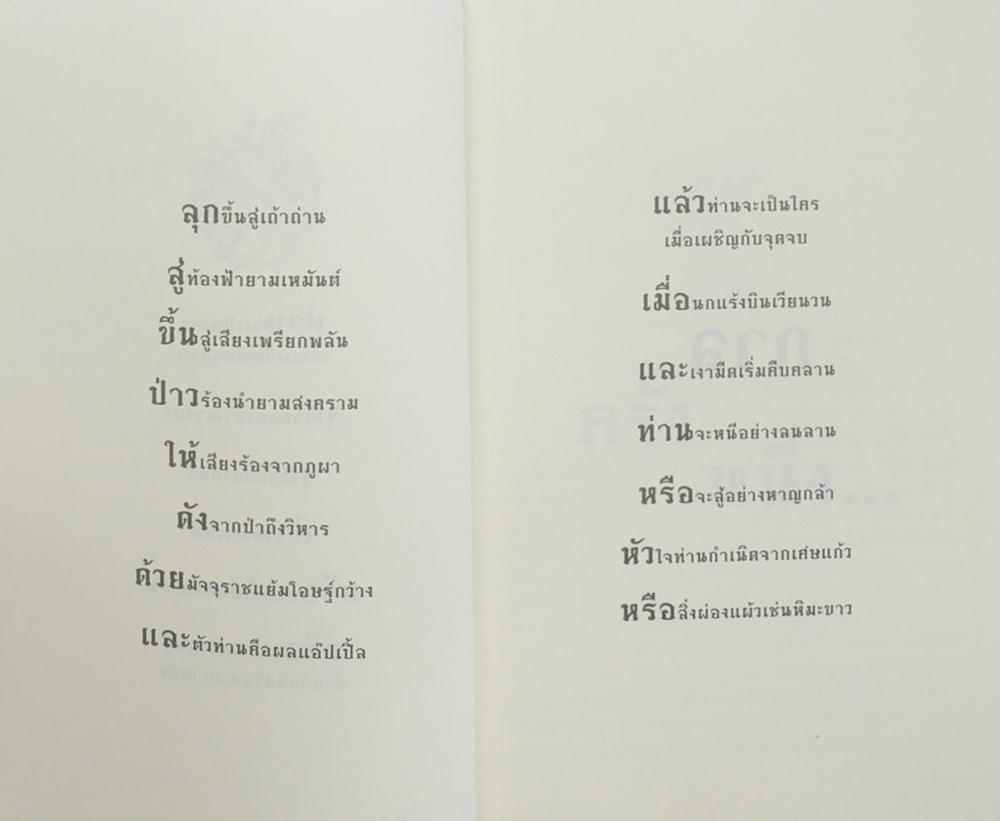 ลุกขึ้นสู่เถ้าถ่าน
สู่ท้องฟ้ายามเหมันต์
ขึ้นสู่เสียงเพรียกพลัน
ป่าวร้องนำยามสงคราม
ให้เสียงร้องจากภูผา
ดังจากป่าถึงวิหาร
ด้วยมัจจุราชแย้มโอษฐ์กว้าง
และตัวท่านคือผลแอ๊ปเปิ้ล
แล้วท่านจะเป็นใคร
เมื่อเผชิญกับจุดจบ
เมื่อนกแร้งบินเวียนวน
และเงามืดเริ่มคืบคลาน
ท่านจะหนีอย่างลนลาน
หรือจะสู้อย่างหาญกล้า
หัวใจท่านกำเนิดจากเศษแก้ว
หรือสิ่งผ่องแผ้วเช่นหิมะขาว